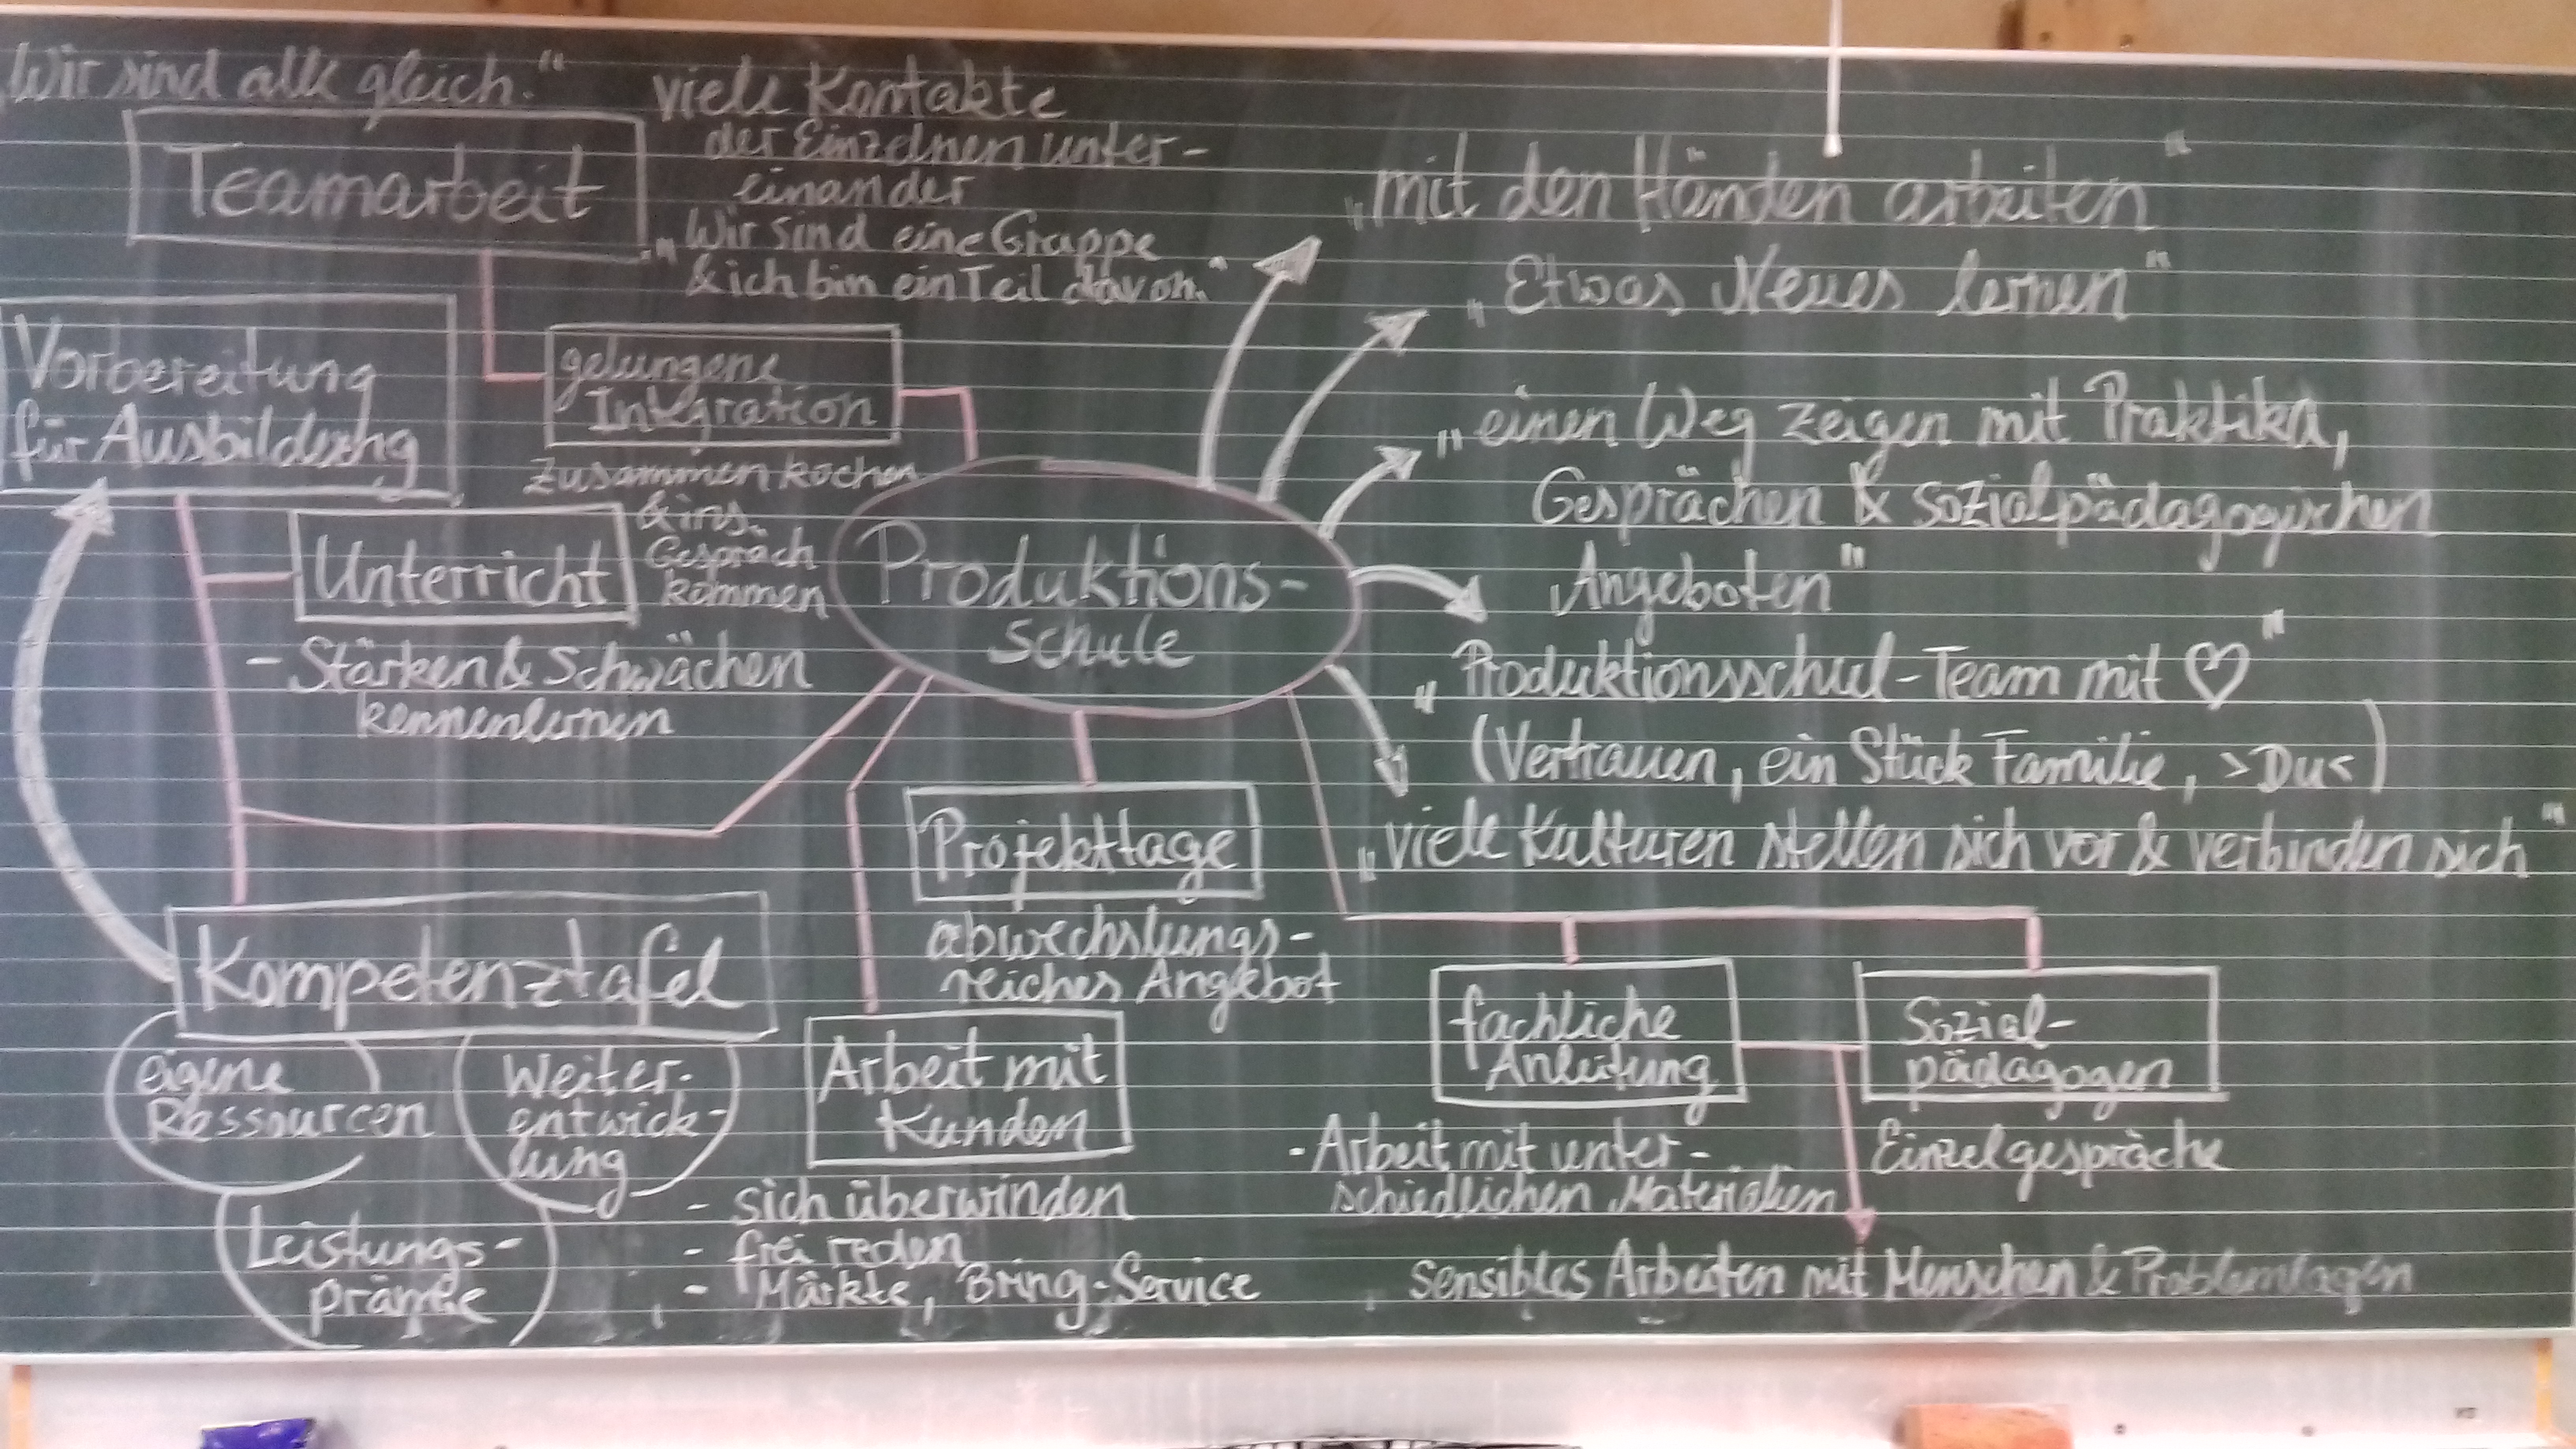 „Wir sind alle gleich."
Teamarbeit
viele Kontakte
der Einzelnen unter-
einander
„Wir sind eine Gruppe
& ich bin ein Teil davon."
gelungene
Integration
zusammen kochen
& ins
Gespräch
kommen
Vorbereitung
für Ausbildung
Unterricht
- Stärken & Schwächen
kennenlernen
Produktions-
schule
„mit den Händen arbeiten"
„Etwas Neues lernen"
„einen Weg zeigen mit Praktika,
Gesprächen & sozialpädagogischen
Angeboten"
„Produktionsschul-Team mit ♡"
(Vertrauen, ein Stück Familie, >Du<)
„viele Kulturen stellen sich vor & verbinden sich"
Kompetenztafel
eigene
Ressourcen
Weiter-
entwick-
lung
Leistungs-
prämie
Projekttage
abwechslungs-
reiches Angebot
Arbeit mit
Kunden
- sich überwinden
- frei reden
- Märkte, Bring-Service
fachliche
Anleitung
- Arbeit mit unter-
schiedlichen Materialien
Sozial-
pädagogen
Einzelgespräche
sensibles Arbeiten mit Menschen & Problemlagen